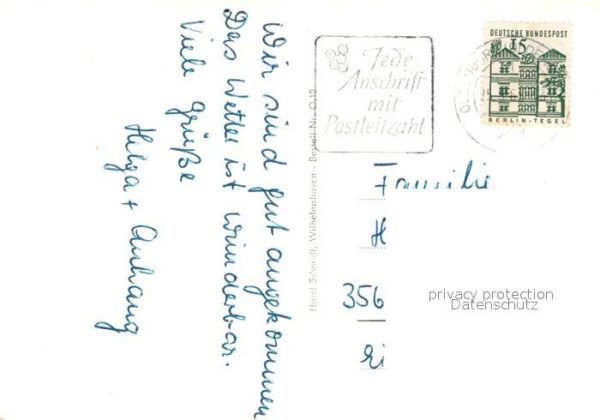 Wir sind gut angekommen
Das Wetter ist wunderbar.
Viele Grüße
Helga + Anhang
Horst Schmidt, Wilhelmshaven - Bestell-Nr. O 10
Jede
Anschrift
mit
Postleitzahl
DEUTSCHE BUNDESPOST
15
BERLIN-TEGEL
Familie
H
356
privacy protection
Datenschutz